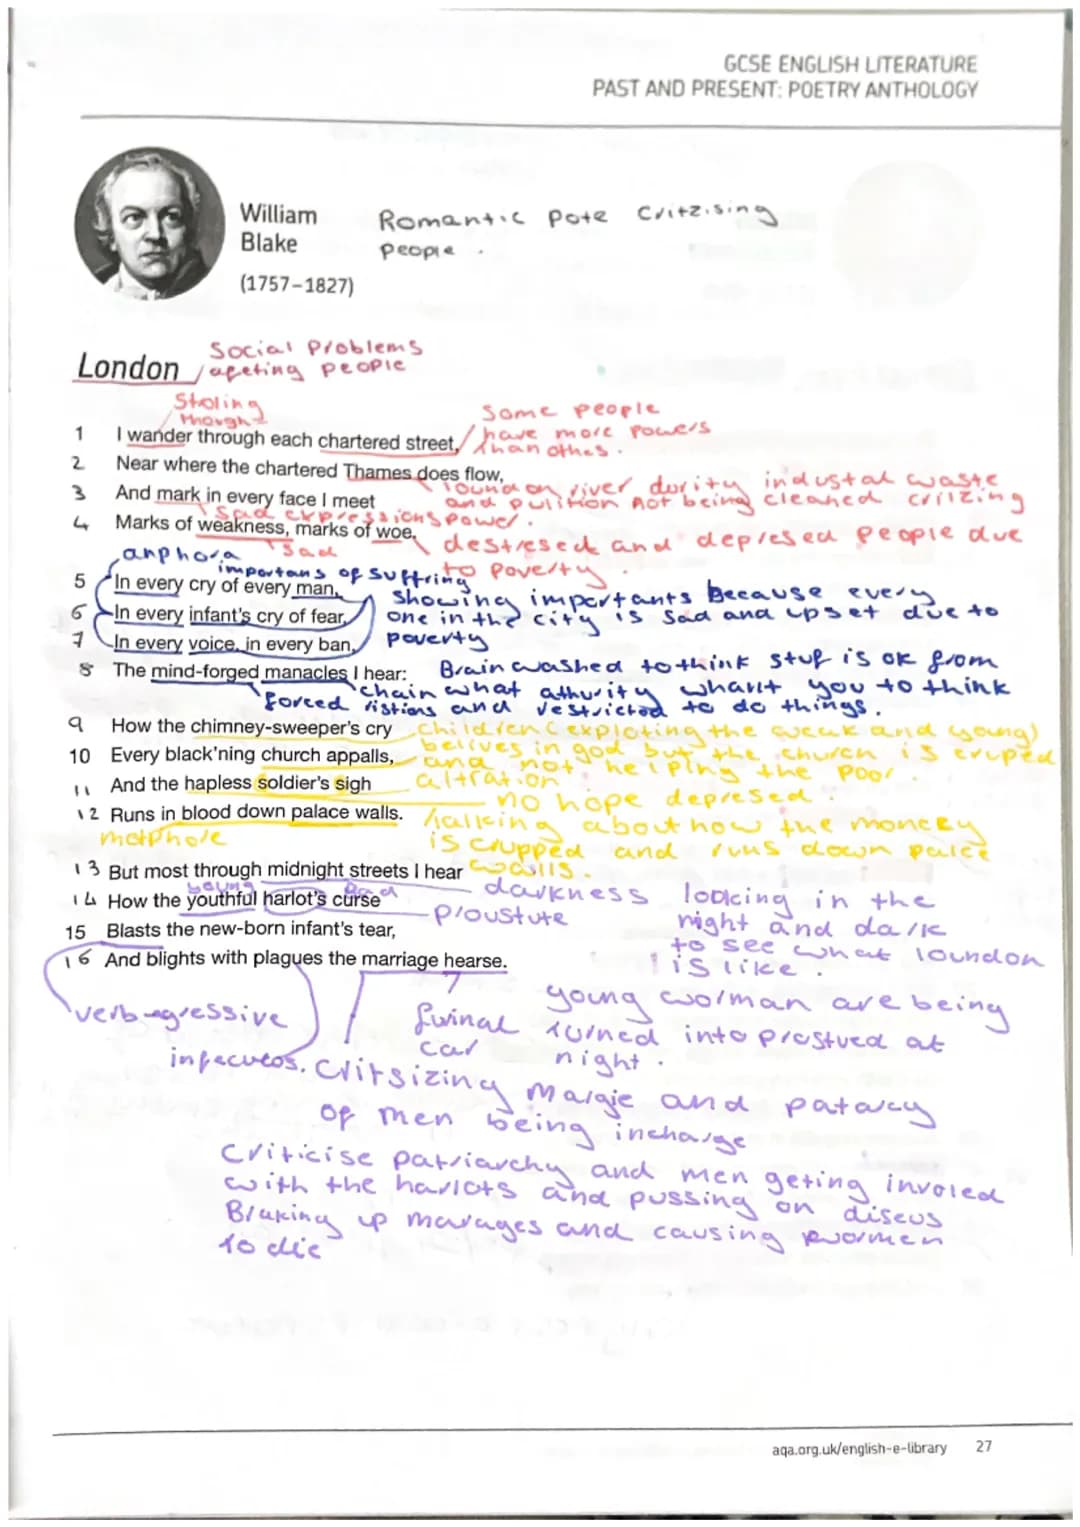 GCSE ENGLISH LITERATURE
PAST AND PRESENT: POETRY ANTHOLOGY
William
Blake
(1757–1827)
Romantic Pote Critzising
People .
London
Social Problems
afeting people
Stroling
though
Some people
have more Powers
than othes .
1 I wander through each chartered street,
2 Near where the chartered Thames does flow,
3 And mark in every face I meet
4 Marks of weakness, marks of woe.
loundon river durity industal waste
and pulition not being cleaned critzing
power.
Sad expressions
Sad
destresed and depresed people due
to Poverty .
anphora
importans of suffring
5 In every cry of every man,
6 In every infant's cry of fear,
7 In every voice, in every ban,
8 The mind-forged manacles I hear:
Showing importants because every
one in the city is sad and upset due to
poverty
Brainwashed to think stuf is ok from
what athurity whant you to think
chain
forced ristions and restricted to do things.
9 How the chimney-sweeper's cry
10 Every black'ning church appalls,
11 And the hapless soldier's sigh
12 Runs in blood down palace walls.
children (exploting the weak and young)
belives in god but the church is eruped
and not helping the poor.
altration
no hope depresed .
talking about how the moncey
is crupped and runs down palce
walls .
motphore
13 But most through midnight streets I hear
14 How the youthful harlot's curse
15 Blasts the new-born infant's tear,
16 And blights with plagues the marriage hearse.
young
bad
darkness looking in the
night and dark
to see what loundon
is like .
proustute
verb agressive
infecutos.
fuinal
car
young wolman are being
turned into prostued at
night .
Critsizing Margie and patarcy
of men being incharge
Criticise patriarchy and men geting involed
with the harlots and pussing on diseus
Braking up marages and causing women
to die
aqa.org.uk/english-e-library 27